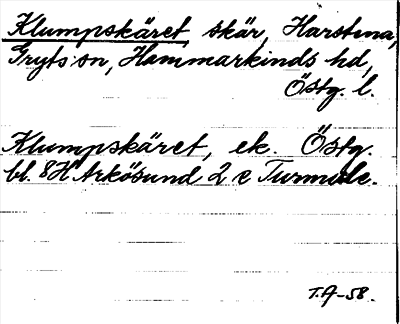 Klumpskäret, skär, Harstena,
Gryts sn, Hammarkinds hd,
Östg. l.
Klumpskäret, ek. Östg.
bl. 8H Arkösund 2 c Turmule.
T.A-58.